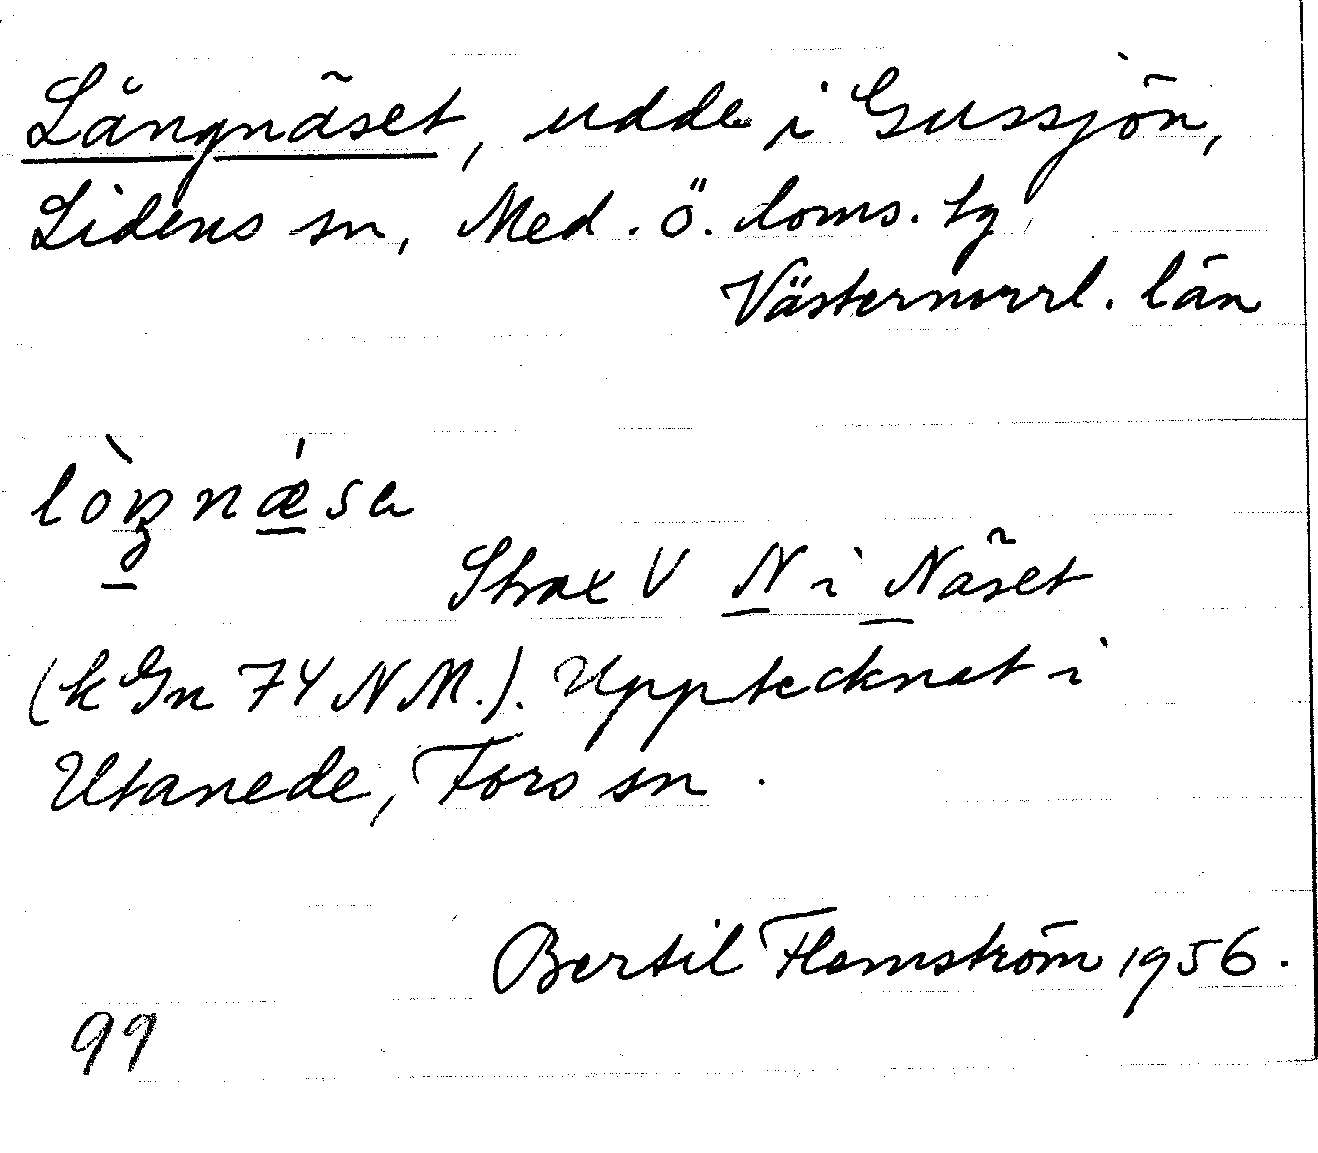 Långnäset, udde i Gussjön,
Lidens sn, Med. ö. doms. tg
Västernorrl. län
lòŋnǽsa
Strax V N i Näset
(k Gn 74 NM.). Upptecknat i
Utanede, Fors sn.
Bertil Flemström 1956.
99